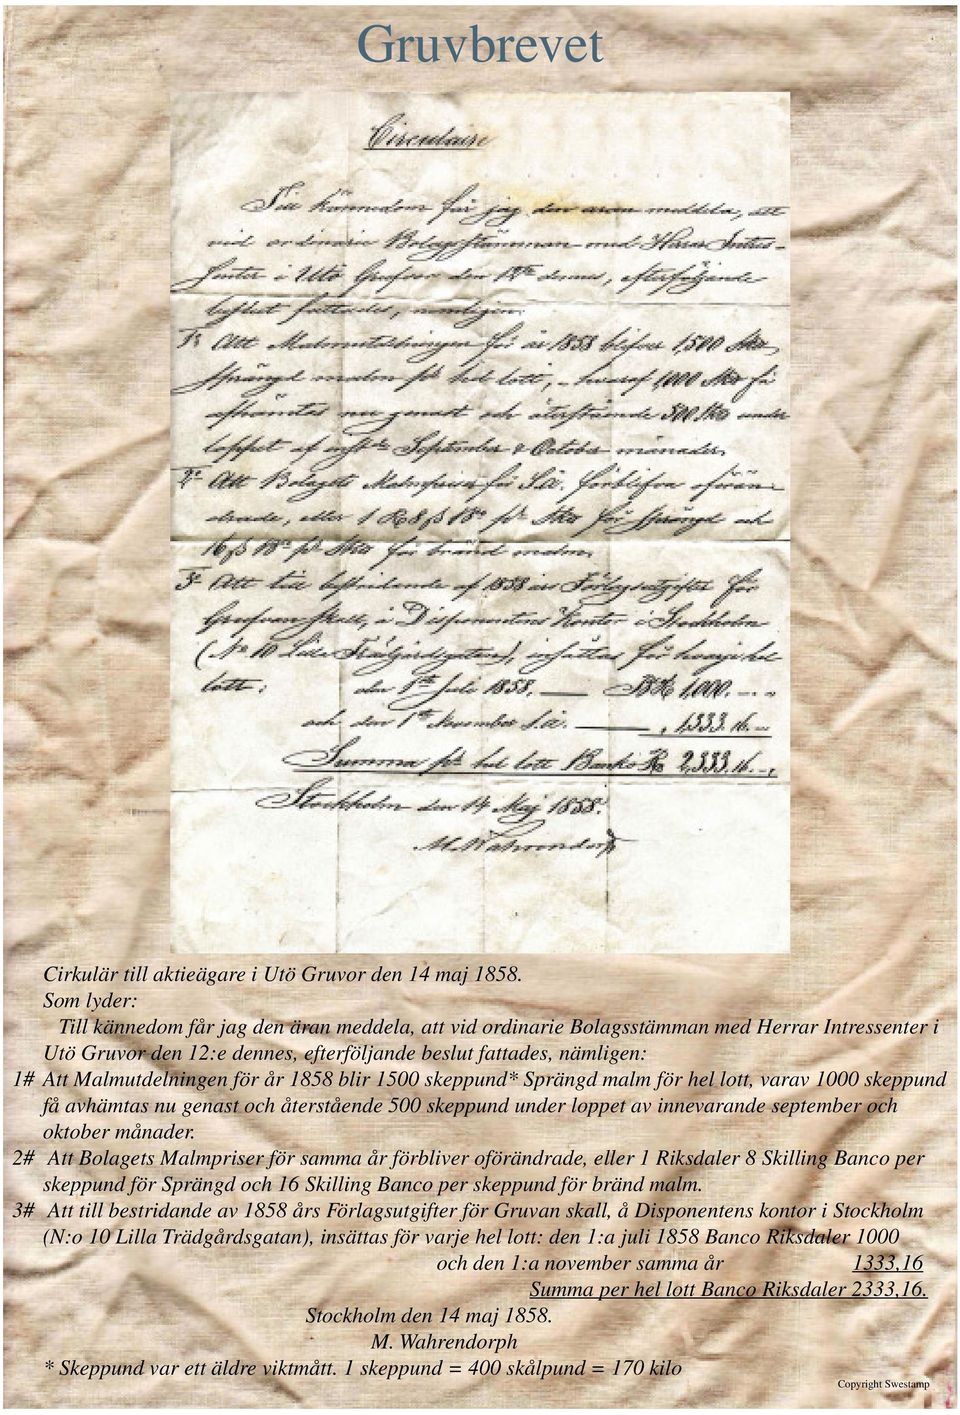 Gruvbrevet
Circulaire
Till kännedom får jag den äran meddela, att
vid ordinarie Bolagsstämman med Herrar Intres-
senter i Utö Grufvor den 12te dennes, efterföljande
beslut fattades, nemligen:
1o Att Malmutdelningen för år 1858 blifver 1,500 Skd
sprängd malm pr hel lott, - hvaraf 1,000 Skd få
afhämtas nu genast och återstående 500 Skd under
loppet af September & October månader.
2o Att Bolagets Malmpriser för S.å. förblifva oförän-
drade, eller 1 R 8 ß pr Skd för sprängd och
16 ß pr Skd för bränd malm.
3o Att till bestridande af 1858 års Förlagsutgifter för
Grufvan skall, å Disponentens Kontor i Stockholm
(No 10 Lilla Trädgårdsgatan), insättas för hel
lott: den 1sta Juli 1858. — 1,000. -
och den 1sta November S.å. — " 1,333. 16. -
Summa pr hel lott Banko 2,333. 16. -
Stockholm den 14 Maj 1858.
M. Wahrendorff
Cirkulär till aktieägare i Utö Gruvor den 14 maj 1858.
Som lyder:
Till kännedom får jag den äran meddela, att vid ordinarie Bolagsstämman med Herrar Intressenter i
Utö Gruvor den 12:e dennes, efterföljande beslut fattades, nämligen:
1# Att Malmutdelningen för år 1858 blir 1500 skeppund* Sprängd malm för hel lott, varav 1000 skeppund
få avhämtas nu genast och återstående 500 skeppund under loppet av innevarande september och
oktober månader.
2# Att Bolagets Malmpriser för samma år förbliver oförändrade, eller 1 Riksdaler 8 Skilling Banco per
skeppund för Sprängd och 16 Skilling Banco per skeppund för bränd malm.
3# Att till bestridande av 1858 års Förlagsutgifter för Gruvan skall, å Disponentens kontor i Stockholm
(N:o 10 Lilla Trädgårdsgatan), insättas för varje hel lott: den 1:a juli 1858 Banco Riksdaler 1000
och den 1:a november samma år 1333,16
Summa per hel lott Banco Riksdaler 2333,16.
Stockholm den 14 maj 1858.
M. Wahrendorph
* Skeppund var ett äldre viktmått. 1 skeppund = 400 skålpund = 170 kilo
Copyright Swestamp